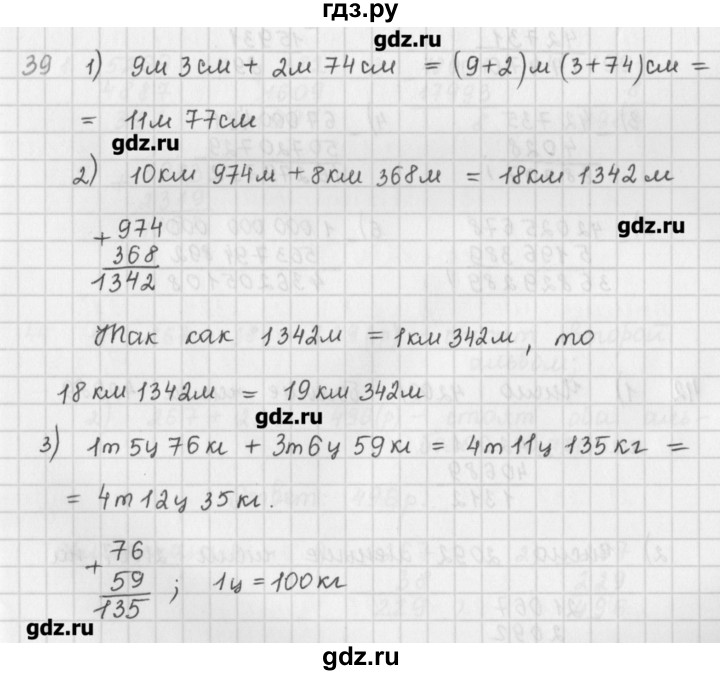 гдз.ру
gdz.ru
39 1) 9м 3см + 2м 74см = (9+2)м (3+74)см =
= 11м 77см
gdz.ru
2) 10км 974м + 8км 368м = 18км 1342м
gdz.ru
+ 974
368
1342
Так как 1342м = 1км 342м, то
18км 1342м = 19км 342м
gdz.ru
3) 1т 5ц 76кг + 3т 6ц 59кг = 4т 11ц 135кг =
= 4т 12ц 35кг.
+ 76
59 ; 1ц = 100кг
135
gdz.ru
gdz.ru